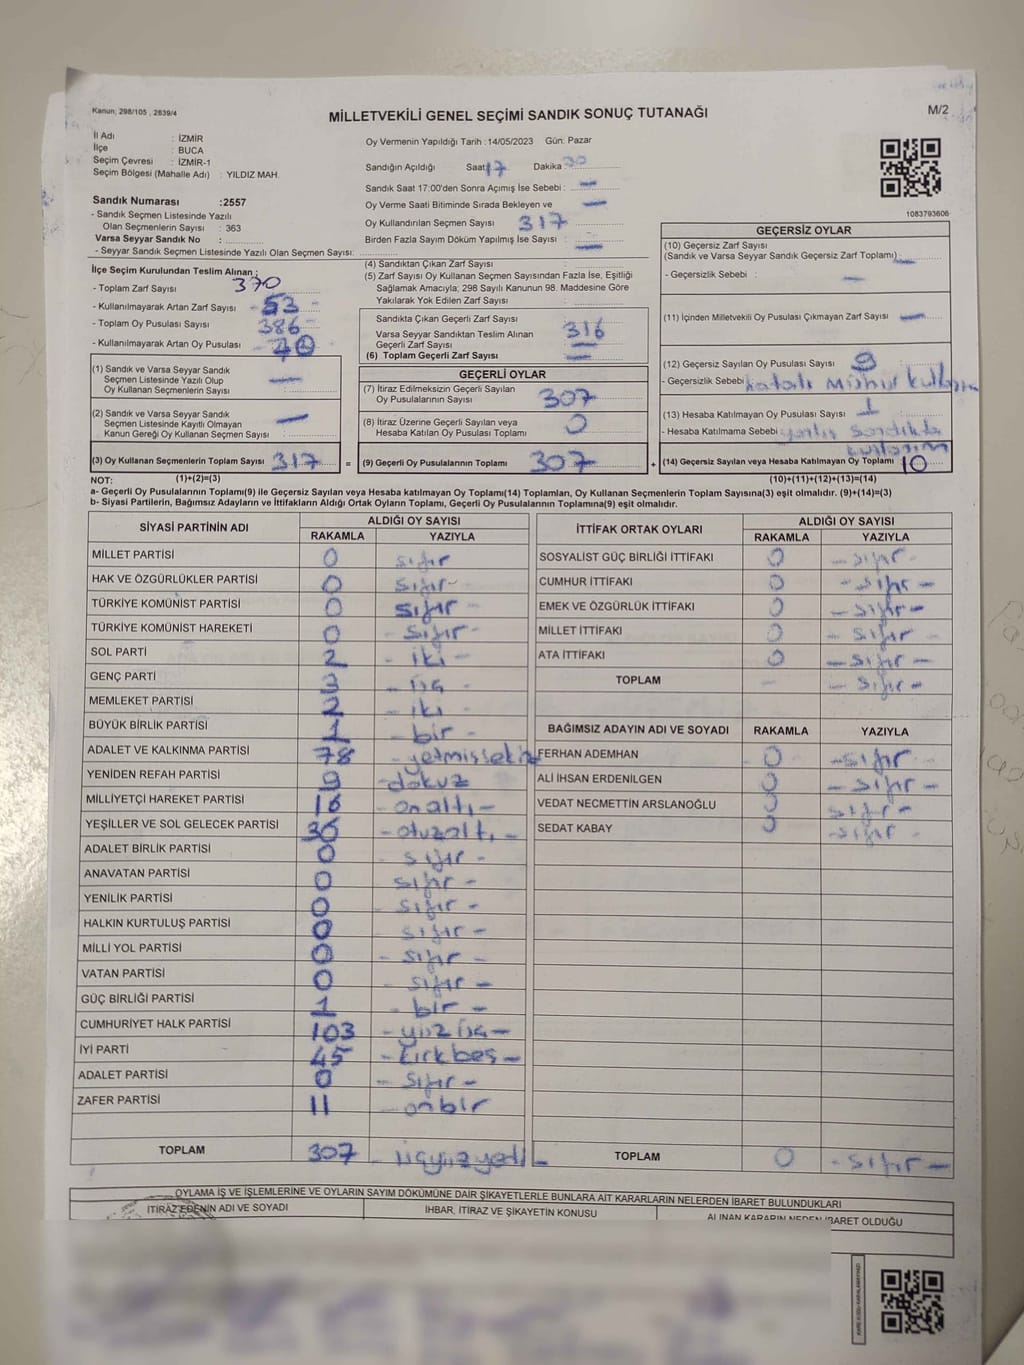 Kanun; 298/105 , 2839/4
MİLLETVEKİLİ GENEL SEÇİMİ SANDIK SONUÇ TUTANAĞI
M/2
İl Adı : İZMİR
İlçe : BUCA
Seçim Çevresi : İZMİR-1
Seçim Bölgesi (Mahalle Adı) : YILDIZ MAH.
Sandık Numarası :2557
- Sandık Seçmen Listesinde Yazılı
Olan Seçmenlerin Sayısı : 363
Varsa Seyyar Sandık No :
- Seyyar Sandık Seçmen Listesinde Yazılı Olan Seçmen Sayısı:
Oy Vermenin Yapıldığı Tarih :14/05/2023 Gün: Pazar
Sandığın Açıldığı Saat 17 Dakika 30
Sandık Saat 17:00'den Sonra Açımış İse Sebebi : —
Oy Verme Saati Bitiminde Sırada Bekleyen ve —
Oy Kullandırılan Seçmen Sayısı 317
Birden Fazla Sayım Döküm Yapılmış İse Sayısı : —
1083793606
İlçe Seçim Kurulundan Teslim Alınan :
- Toplam Zarf Sayısı 370
- Kullanılmayarak Artan Zarf Sayısı - 53 -
- Toplam Oy Pusulası Sayısı 386
- Kullanılmayarak Artan Oy Pusulası
(1) Sandık ve Varsa Seyyar Sandık
Seçmen Listesinde Yazılı Olup
Oy Kullanan Seçmenlerin Sayısı —
(2) Sandık ve Varsa Seyyar Sandık
Seçmen Listesinde Kayıtlı Olmayan
Kanun Gereği Oy Kullanan Seçmen Sayısı —
(3) Oy Kullanan Seçmenlerin Toplam Sayısı 317 =
(4) Sandıktan Çıkan Zarf Sayısı :
(5) Zarf Sayısı Oy Kullanan Seçmen Sayısından Fazla İse, Eşitliği
Sağlamak Amacıyla; 298 Sayılı Kanunun 98. Maddesine Göre
Yakılarak Yok Edilen Zarf Sayısı :
Sandıkta Çıkan Geçerli Zarf Sayısı : 316
Varsa Seyyar Sandıktan Teslim Alınan
Geçerli Zarf Sayısı : —
(6) Toplam Geçerli Zarf Sayısı : —
GEÇERLİ OYLAR
(7) İtiraz Edilmeksizin Geçerli Sayılan
Oy Pusulalarının Sayısı: 307
(8) İtiraz Üzerine Geçerli Sayılan veya
Hesaba Katılan Oy Pusulası Toplamı 0
(9) Geçerli Oy Pusulalarının Toplamı 307 +
GEÇERSİZ OYLAR
(10) Geçersiz Zarf Sayısı
(Sandık ve Varsa Seyyar Sandık Geçersiz Zarf Toplamı) : —
- Geçersizlik Sebebi : —
(11) İçinden Milletvekili Oy Pusulası Çıkmayan Zarf Sayısı —
(12) Geçersiz Sayılan Oy Pusulası Sayısı 9
- Geçersizlik Sebebi hatalı mühür
(13) Hesaba Katılmayan Oy Pusulası Sayısı 1
- Hesaba Katılmama Sebebi yanlış sandıkta
kullanım
(14) Geçersiz Sayılan veya Hesaba Katılmayan Oy Toplamı 10
NOT: (1)+(2)=(3) (10)+(11)+(12)+(13)=(14)
a- Geçerli Oy Pusulalarının Toplamı(9) ile Geçersiz Sayılan veya Hesaba Katılmayan Oy Toplamı(14) Toplamları, Oy Kullanan Seçmenlerin Toplam Sayısına(3) eşit olmalıdır. (9)+(14)=(3)
b- Siyasi Partilerin, Bağımsız Adayların ve İttifakların Aldığı Ortak Oyların Toplamı, Geçerli Oy Pusulalarının Toplamına(9) eşit olmalıdır.
SİYASİ PARTİNİN ADI ALDIĞI OY SAYISI
RAKAMLA YAZIYLA
MİLLET PARTİSİ 0 sıfır
HAK VE ÖZGÜRLÜKLER PARTİSİ 0 sıfır-
TÜRKİYE KOMÜNİST PARTİSİ 0 sıfır -
TÜRKİYE KOMÜNİST HAREKETİ 0 - sıfır -
SOL PARTİ 2 - iki -
GENÇ PARTİ 3 - üç -
MEMLEKET PARTİSİ 2 - iki -
BÜYÜK BİRLİK PARTİSİ 1 - bir -
ADALET VE KALKINMA PARTİSİ 78 - yetmişsekiz
YENİDEN REFAH PARTİSİ 9 - dokuz
MİLLİYETÇİ HAREKET PARTİSİ 16 - onaltı -
YEŞİLLER VE SOL GELECEK PARTİSİ 36 - otuzaltı -
ADALET BİRLİK PARTİSİ 0 - sıfır -
ANAVATAN PARTİSİ 0 sıfır -
YENİLİK PARTİSİ 0 - sıfır -
HALKIN KURTULUŞ PARTİSİ 0 - sıfır -
MİLLİ YOL PARTİSİ 0 - sıfır -
VATAN PARTİSİ 0 - sıfır -
GÜÇ BİRLİĞİ PARTİSİ 1 - bir -
CUMHURİYET HALK PARTİSİ 103 - yüzüç -
İYİ PARTİ 45 - kırkbeş -
ADALET PARTİSİ 0 - sıfır -
ZAFER PARTİSİ 11 - onbir
TOPLAM 307 - üçyüzyedi -
İTTİFAK ORTAK OYLARI ALDIĞI OY SAYISI
RAKAMLA YAZIYLA
SOSYALİST GÜÇ BİRLİĞİ İTTİFAKI 0 - sıfır -
CUMHUR İTTİFAKI 0 - sıfır -
EMEK VE ÖZGÜRLÜK İTTİFAKI 0 - sıfır -
MİLLET İTTİFAKI 0 - sıfır
ATA İTTİFAKI 0 - sıfır -
TOPLAM - - sıfır -
BAĞIMSIZ ADAYIN ADI VE SOYADI RAKAMLA YAZIYLA
FERHAN ADEMHAN 0 - sıfır
ALİ İHSAN ERDENİLGEN 0 - sıfır -
VEDAT NECMETTİN ARSLANOĞLU 0 sıfır -
SEDAT KABAY 0 - sıfır
TOPLAM 0 - sıfır -
OYLAMA İŞ VE İŞLEMLERİNE VE OYLARIN SAYIM DÖKÜMÜNE DAİR ŞİKAYETLERLE BUNLARA AİT KARARLARIN NELERDEN İBARET BULUNDUKLARI
İTİRAZ EDENİN ADI VE SOYADI İHBAR, İTİRAZ VE ŞİKAYETİN KONUSU ALINAN KARARIN NEDEN İBARET OLDUĞU